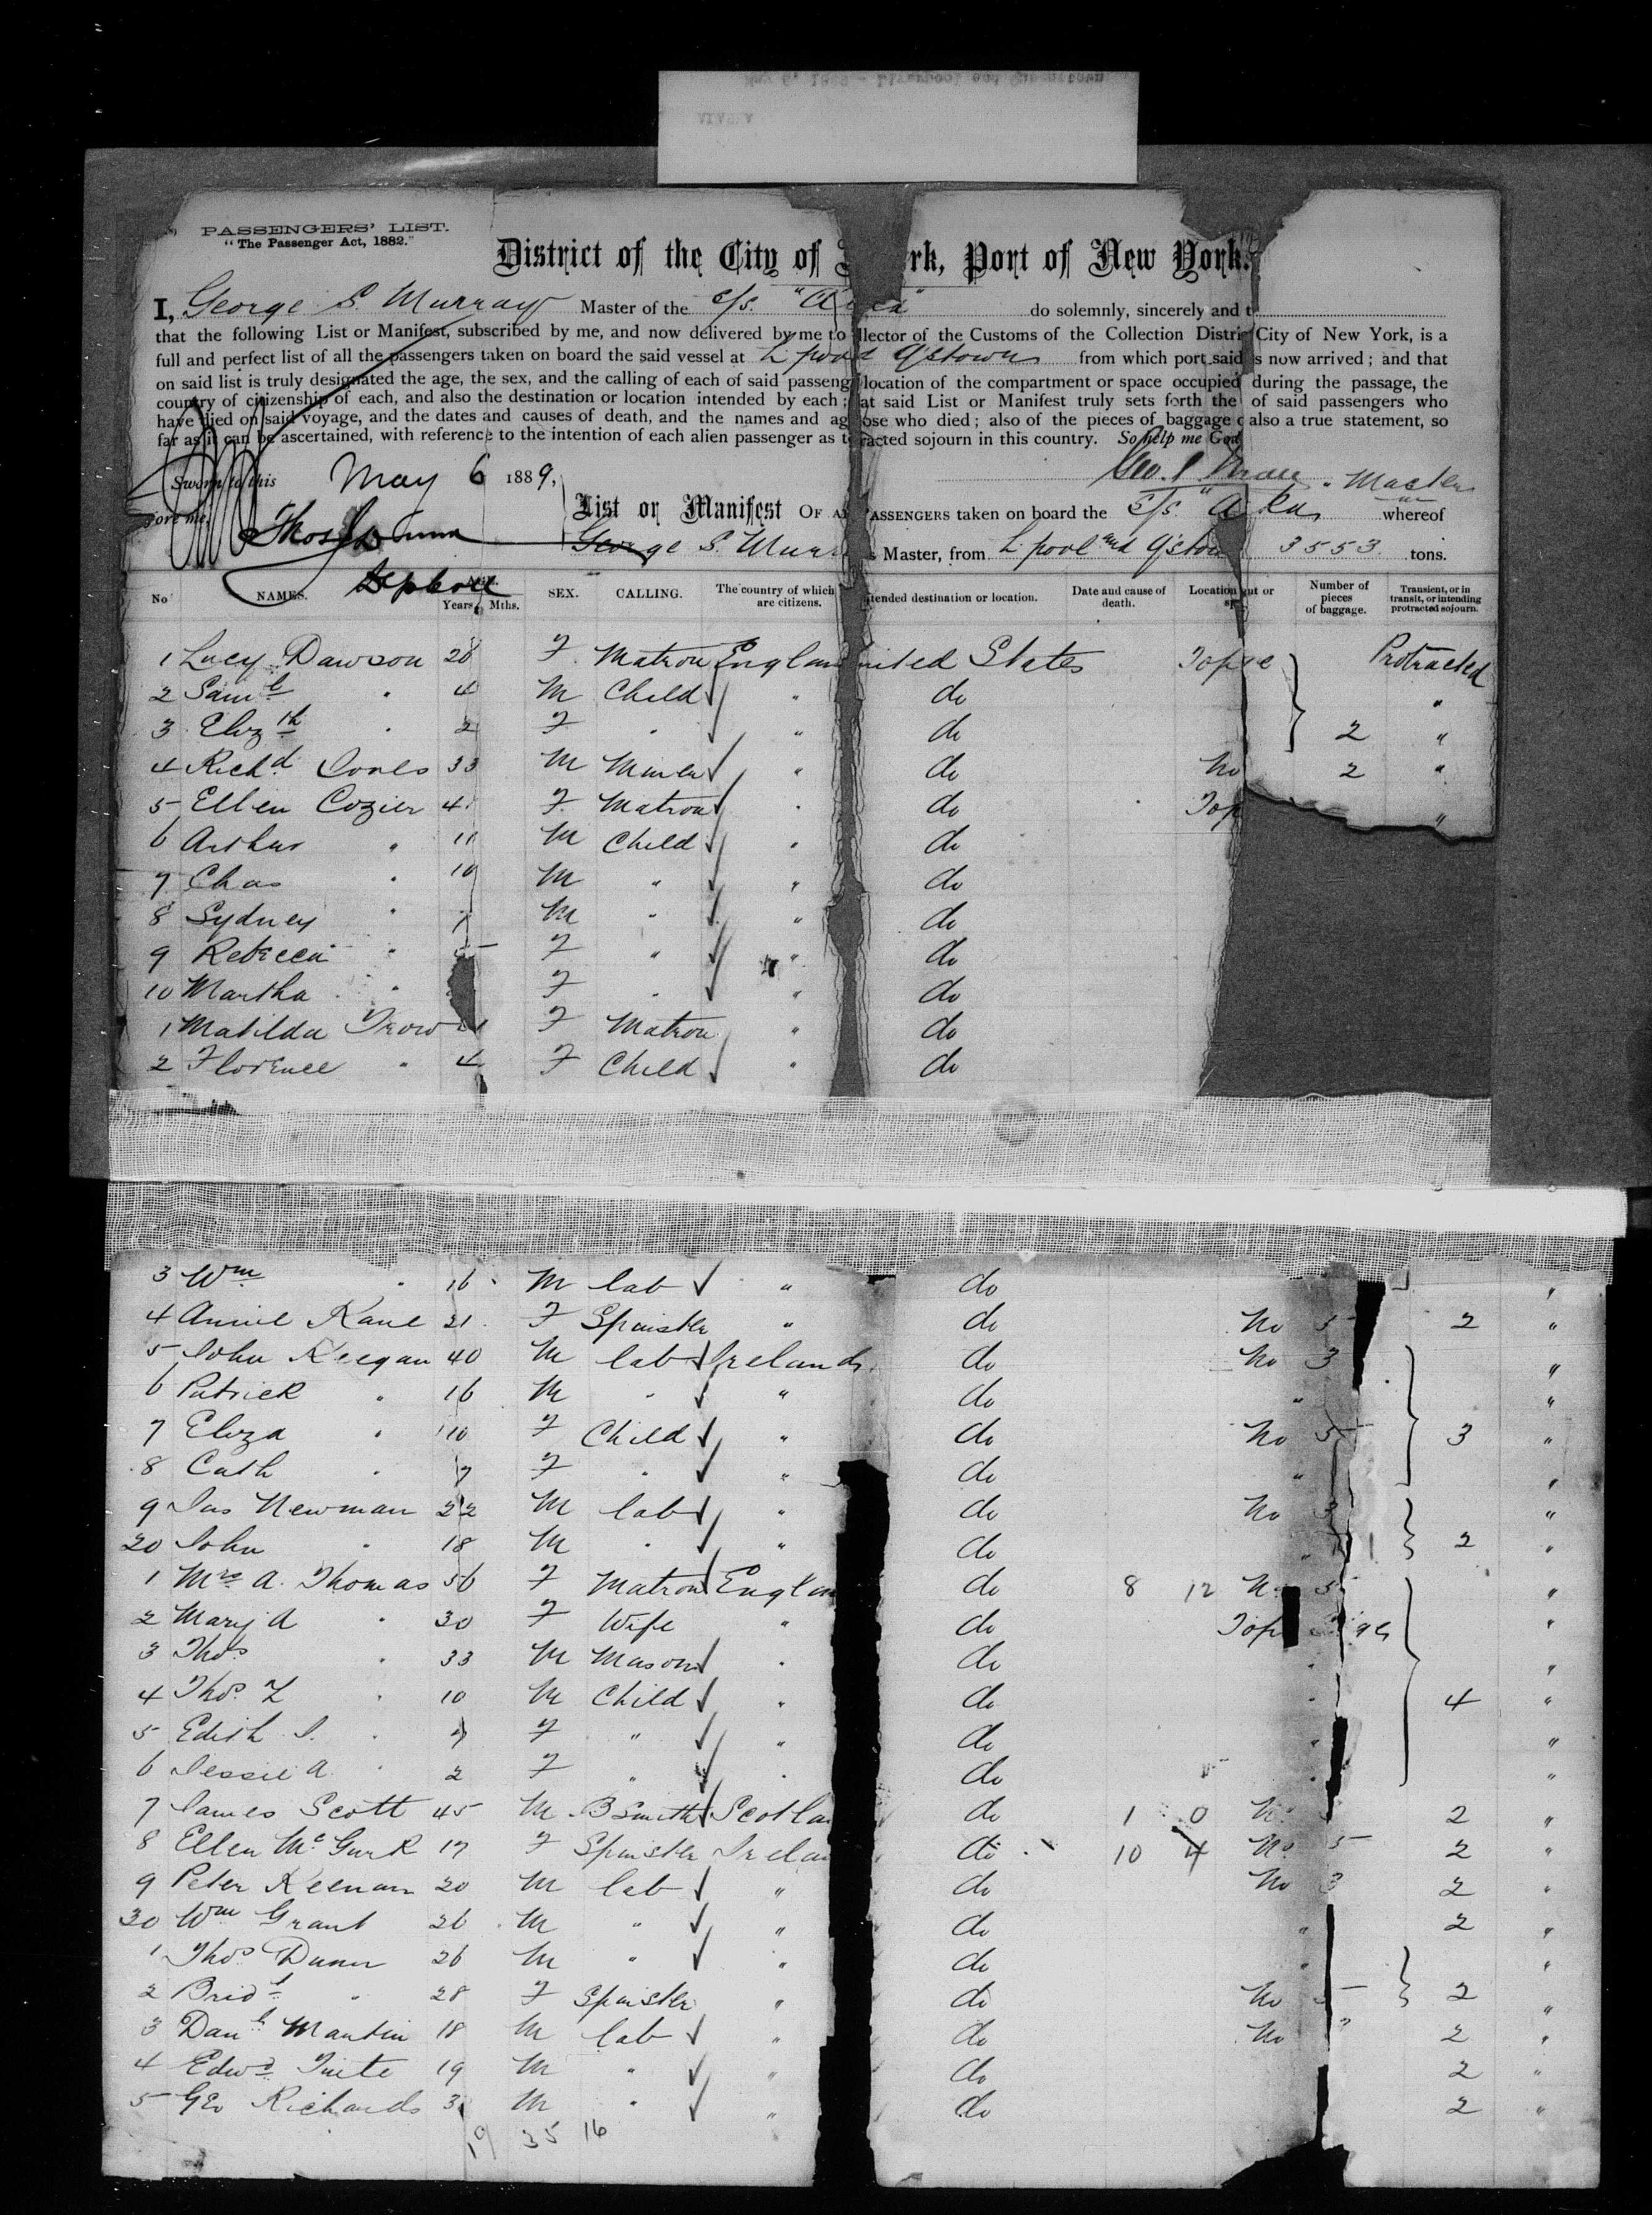 PASSENGERS' LIST.
"The Passenger Act, 1882."
District of the City of rk, Port of New York.
I, George S. Murray Master of the S/s. "A do solemnly, sincerely and t
that the following List or Manifest, subscribed by me, and now delivered by me to llector of the Customs of the Collection Distri City of New York, is a
full and perfect list of all the passengers taken on board the said vessel at L'pool Q'stown from which port said s now arrived; and that
on said list is truly designated the age, the sex, and the calling of each of said passeng location of the compartment or space occupied during the passage, the
country of citizenship of each, and also the destination or location intended by each; at said List or Manifest truly sets forth the of said passengers who
have died on said voyage, and the dates and causes of death, and the names and ag ose who died; also of the pieces of baggage also a true statement, so
far as it can be ascertained, with reference to the intention of each alien passenger as t racted sojourn in this country. So help me God
Sworn to this May 6 1889, Geo. S. Master
fore me
List or Manifest OF A PASSENGERS taken on board the S/s. "A whereof
George S. Murr s Master, from L'pool and Q'stow 3553 tons.
No NAMES. Years Mths. SEX. CALLING. The country of which are citizens. tended destination or location. Date and cause of death. Location nt or sp Number of pieces of baggage. Transient, or in transit, or intending protracted sojourn.
1 Lucy Dawson 28 F. Matron Englan nited States Top Protracted
2 Saml " 4 M Child " do "
3 Elizth " 2 F " " do 2 "
4 Richd Jones 33 M Miner " do No 2 "
5 Ellen Cozier 4 F. Matron " do Top "
6 Arthur " 11 M Child " do
7 Chas " 10 M " " do
8 Sydney " 7 M " " do
9 Rebecca " 5 F " " do
10 Martha " F " " do
1 Matilda Trow F Matron " do
2 Florence " 4 F Child " do
3 Wm " 16 M lab " do "
4 Annie Kane 21 F Spinster " do No 5 2 "
5 John Keegan 40 M lab Ireland do No 3 "
6 Patrick " 16 M " " do " "
7 Eliza " 10 F Child " do No 5 3 "
8 Cath " 7 F " " do " "
9 Jas Newman 22 M lab " do No 3 "
20 John " 18 M " " do " 2 "
1 Mrs A. Thomas 56 F Matron Englan do 8 12 N 5 "
2 Mary A " 30 F Wife " do Top "
3 Thos " 33 M Mason " do " "
4 Thos. " 10 M Child " do " 4 "
5 Edith " 7 F " " do " "
6 Jessie A " 2 F " " do " "
7 James Scott 45 M B Smith Scotla do 1 0 No 2 "
8 Ellen McGurk 17 F Spinster Irela do 10 4 No 5 2 "
9 Peter Keenan 20 M lab " do No 3 2 "
30 Wm Grant 26 M " " do " 2 "
1 Thos Dunn 26 M " " do " "
2 Bridt " 28 F Spinster " do No 2 "
3 Danl Mantin 18 M lab " do No " 2 "
4 Edwd Tuite 19 M " " do 2 "
5 Geo Richards 3 M " " do 2 "
19 35 16